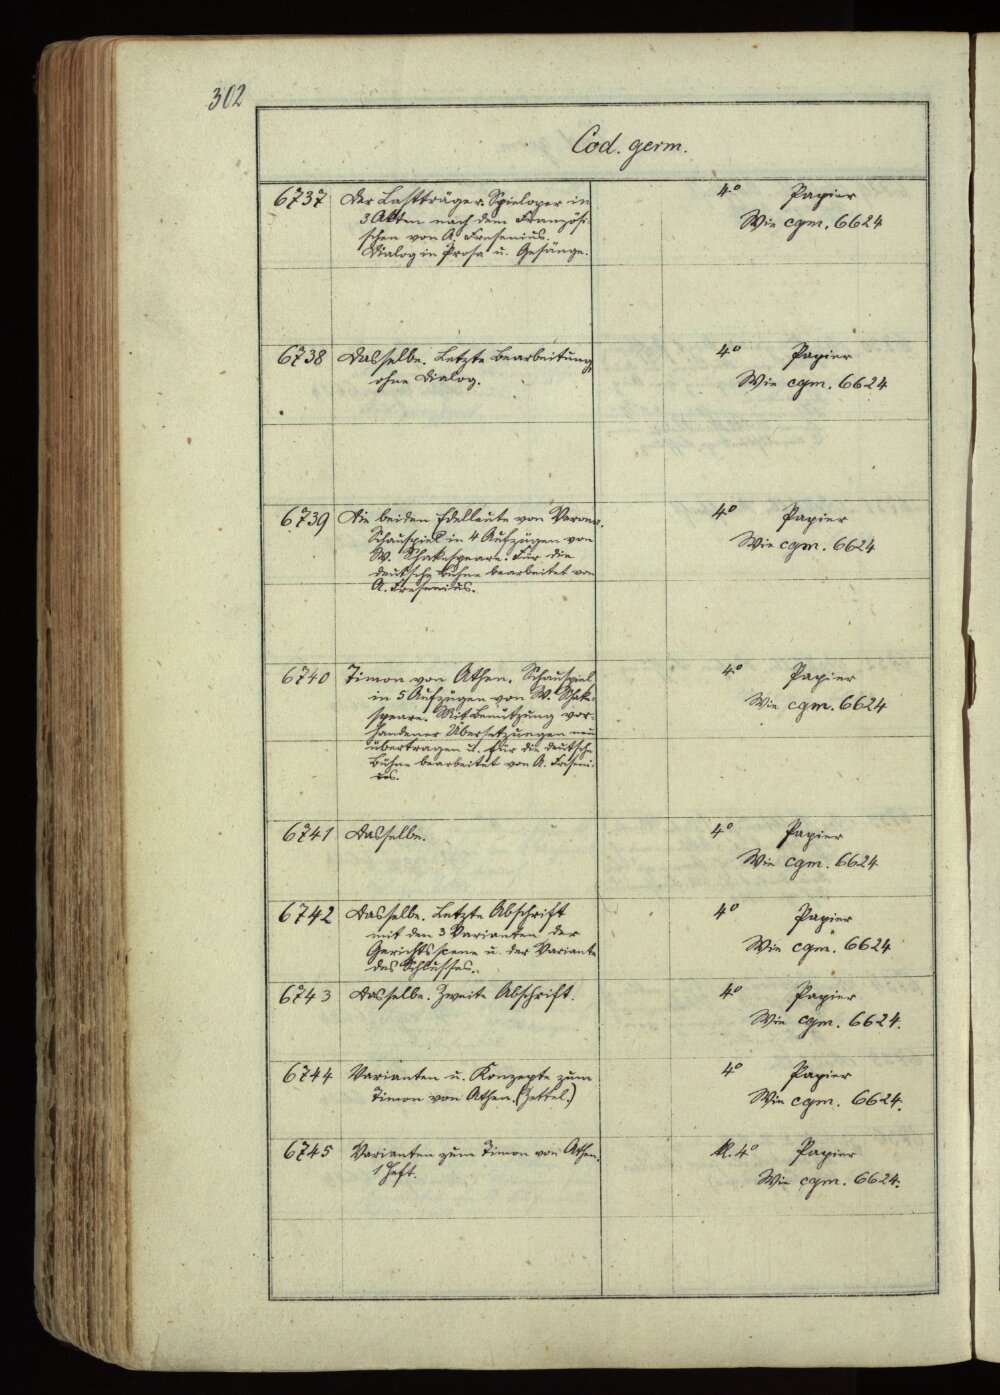 302
Cod. germ.
6737 Der Lastträger. Spieloper in 4° Papier
3 Akten nach dem Französi- Wie cgm. 6624
schen von A. Fresenius.
Dialog in Prosa u. Gesänge.
6738 Dasselbe. Letzte Bearbeitung 4° Papier
ohne Dialog. Wie cgm. 6624
6739 Die beiden Edelleute von Verona. 4° Papier
Schauspiel in 4 Aufzügen von Wie cgm. 6624
W. Shakespeare. Für die
deutsche Bühne bearbeitet von
A. Fresenius.
6740 Timon von Athen. Schauspiel 4° Papier
in 5 Aufzügen von W. Shake- Wie cgm. 6624
speare. Mit Benützung vor-
handener Übersetzungen neu
übertragen u. für die deutsche
Bühne bearbeitet von A. Freseni-
us.
6741 Dasselbe. 4° Papier
Wie cgm. 6624
6742 Dasselbe. Letzte Abschrift 4° Papier
mit den 3 Varianten der Wie cgm. 6624
Gerichtsscene u. der Variante
des Schlusses.
6743 Dasselbe. Zweite Abschrift. 4° Papier
Wie cgm. 6624.
6744 Varianten u. Konzepte zum 4° Papier
Timon von Athen. (Zettel.) Wie cgm. 6624.
6745 Varianten zum Timon von Athen. kl. 4° Papier
1 Heft. Wie cgm. 6624.